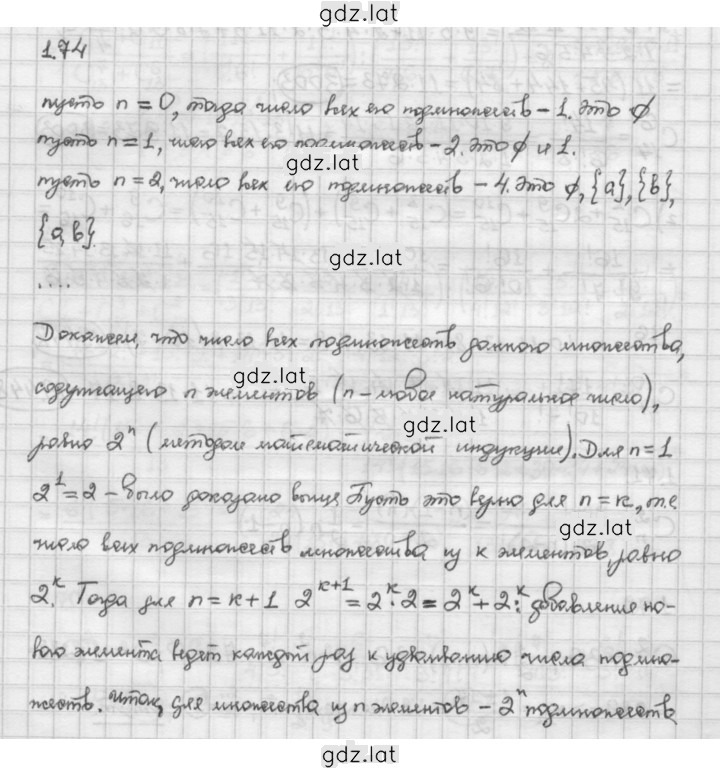 gdz.lat
1.74
пусть n = 0, тогда число всех его подмножеств - 1. Это ∅
пусть n = 1, число всех его подмножеств - 2. Это ∅ и 1.
gdz.lat
пусть n = 2, число всех его подмножеств - 4. Это ∅, {a}, {b},
{a,b}.
gdz.lat
....
Докажем, что число всех подмножеств данного множества,
gdz.lat
содержащего n элементов (n - любое натуральное число),
gdz.lat
равно 2ⁿ (методом математической индукции). Для n = 1
2¹ = 2 - было доказано выше. Пусть это верно для n = k, т.е.
gdz.lat
число всех подмножеств множества из k элементов, равно
2ᵏ. Тогда для n = k + 1 2ᵏ⁺¹ = 2ᵏ · 2 = 2ᵏ + 2ᵏ: добавление но-
вого элемента ведёт каждый раз к удваиванию числа подмно-
жеств. Итак, для множества из n элементов - 2ⁿ подмножеств
gdz.lat